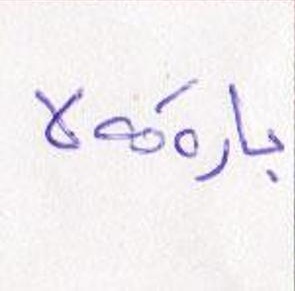 بارەکەلا